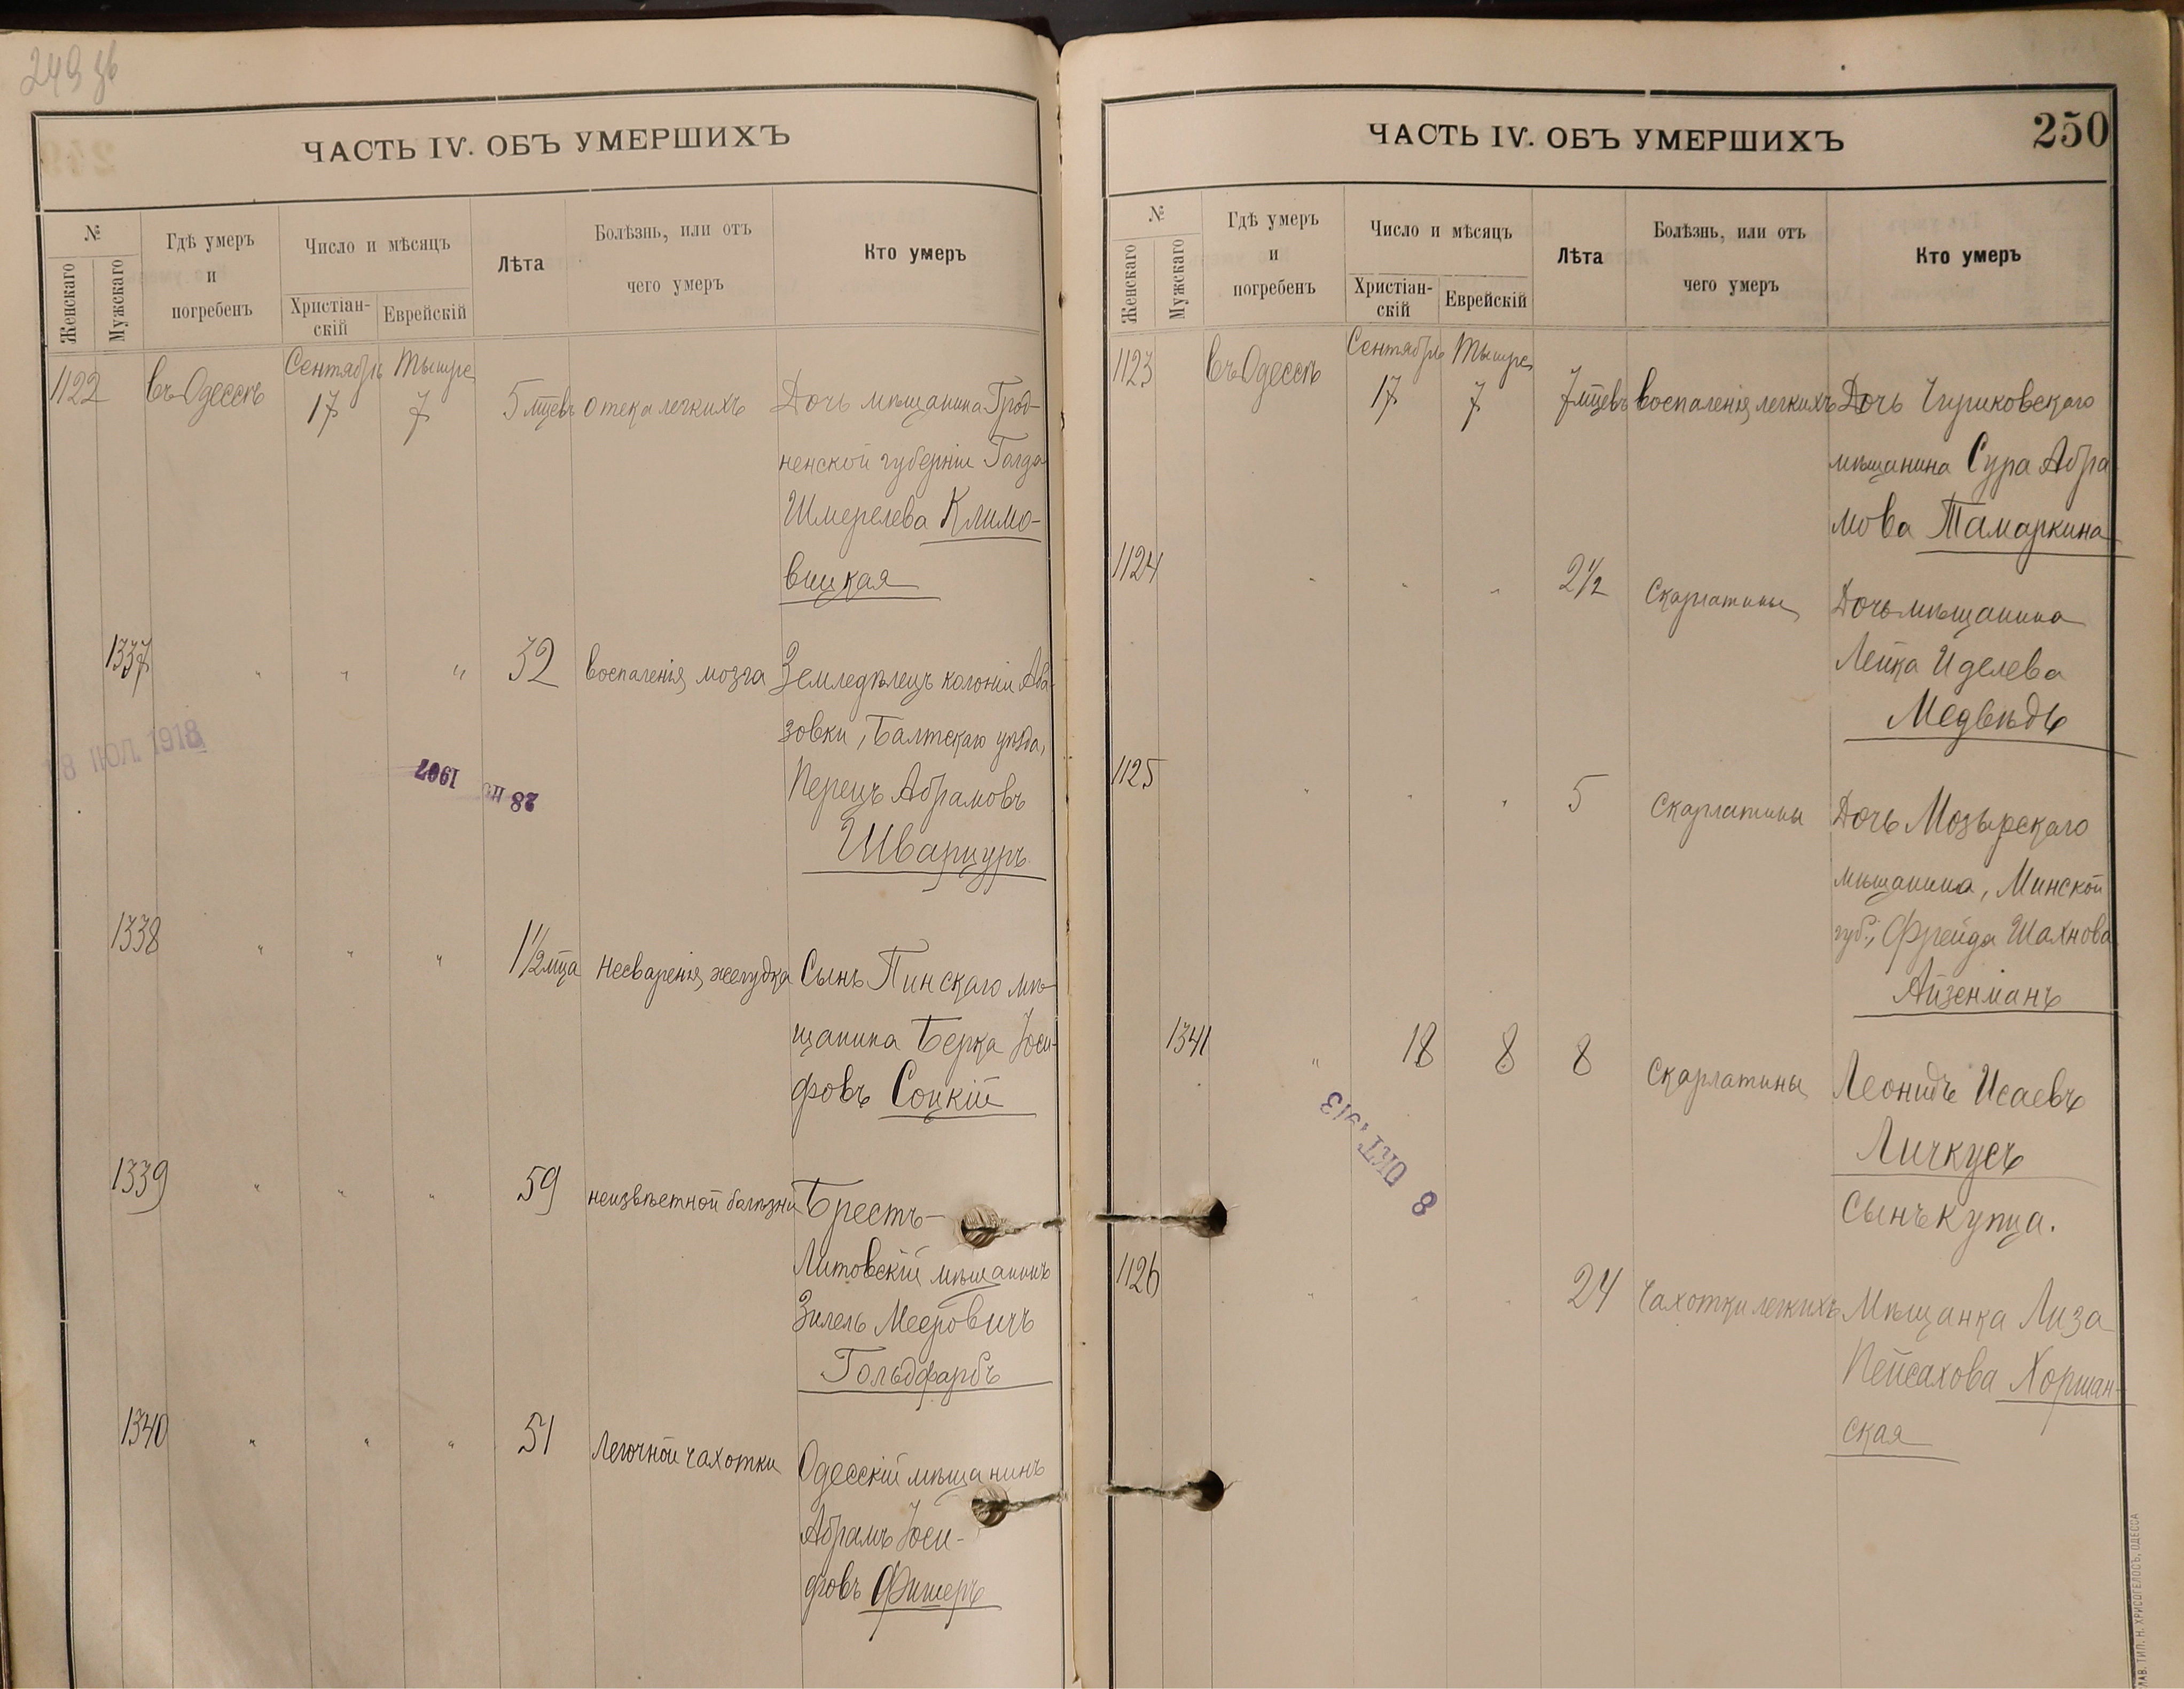 249 зв
ЧАСТЬ IV. ОБЪ УМЕРШИХЪ
№
Женскаго
Мужскаго
Гдѣ умеръ
и
погребенъ
Число и мѣсяцъ
Христіан-
скій
Еврейскій
Лѣта
Болѣзнь, или отъ
чего умеръ
Кто умеръ
1122 въ Одессѣ Сентябрь 17 Тышре 7 5 мцевъ отека легкихъ Дочь мѣщанина Грод-
ненской губерніи Голда
Шмерелева Климо-
вицкая
1337 " " " 32 воспаленія мозга Земледѣлецъ колоніи Аба-
зовки, Балтскаго уѣзда,
Перецъ Абрамовъ
Шварцуръ
18 ІЮЛ. 1918
28 1907
1338 " " " 1½ мца несваренія желудка Сынъ Пинскаго мѣ-
щанина Берка Іоси-
фовъ Соцкій
1339 " " " 59 неизвѣстной болѣзни Брестъ-
Литовскій мѣщанинъ
Зилель Мееровичъ
Гольдфарбъ
1340 " " " 51 Легочной чахотки Одесскій мѣщанинъ
Абрамъ Іоси-
фовъ Фишеръ
ЧАСТЬ IV. ОБЪ УМЕРШИХЪ
250
№
Женскаго
Мужскаго
Гдѣ умеръ
и
погребенъ
Число и мѣсяцъ
Христіан-
скій
Еврейскій
Лѣта
Болѣзнь, или отъ
чего умеръ
Кто умеръ
1123 въ Одессѣ Сентябрь 17 Тышре 7 7 мцевъ воспаленія легкихъ Дочь Чериковскаго
мѣщанина Сура Абра-
мова Тамаркина
1124 " " " 2½ Скарлатины Дочь мѣщанина
Лейка Иделева
Медвѣдь
1125 " " " 5 Скарлатины Дочь Мозырскаго
мѣщанина, Минской
губ., Фрейда Шахнова
Айзенманъ
1341 " 18 8 8 Скарлатины Леонидъ Исаевъ
Личкусъ
сынъ купца.
8 ОКТ 1913
1126 " " " 24 Чахотки легкихъ Мѣщанка Лиза
Пейсахова Хоршан-
ская
СЛАВ. ТИП. Н. ХРИСОГЕЛОСЪ, ОДЕССА